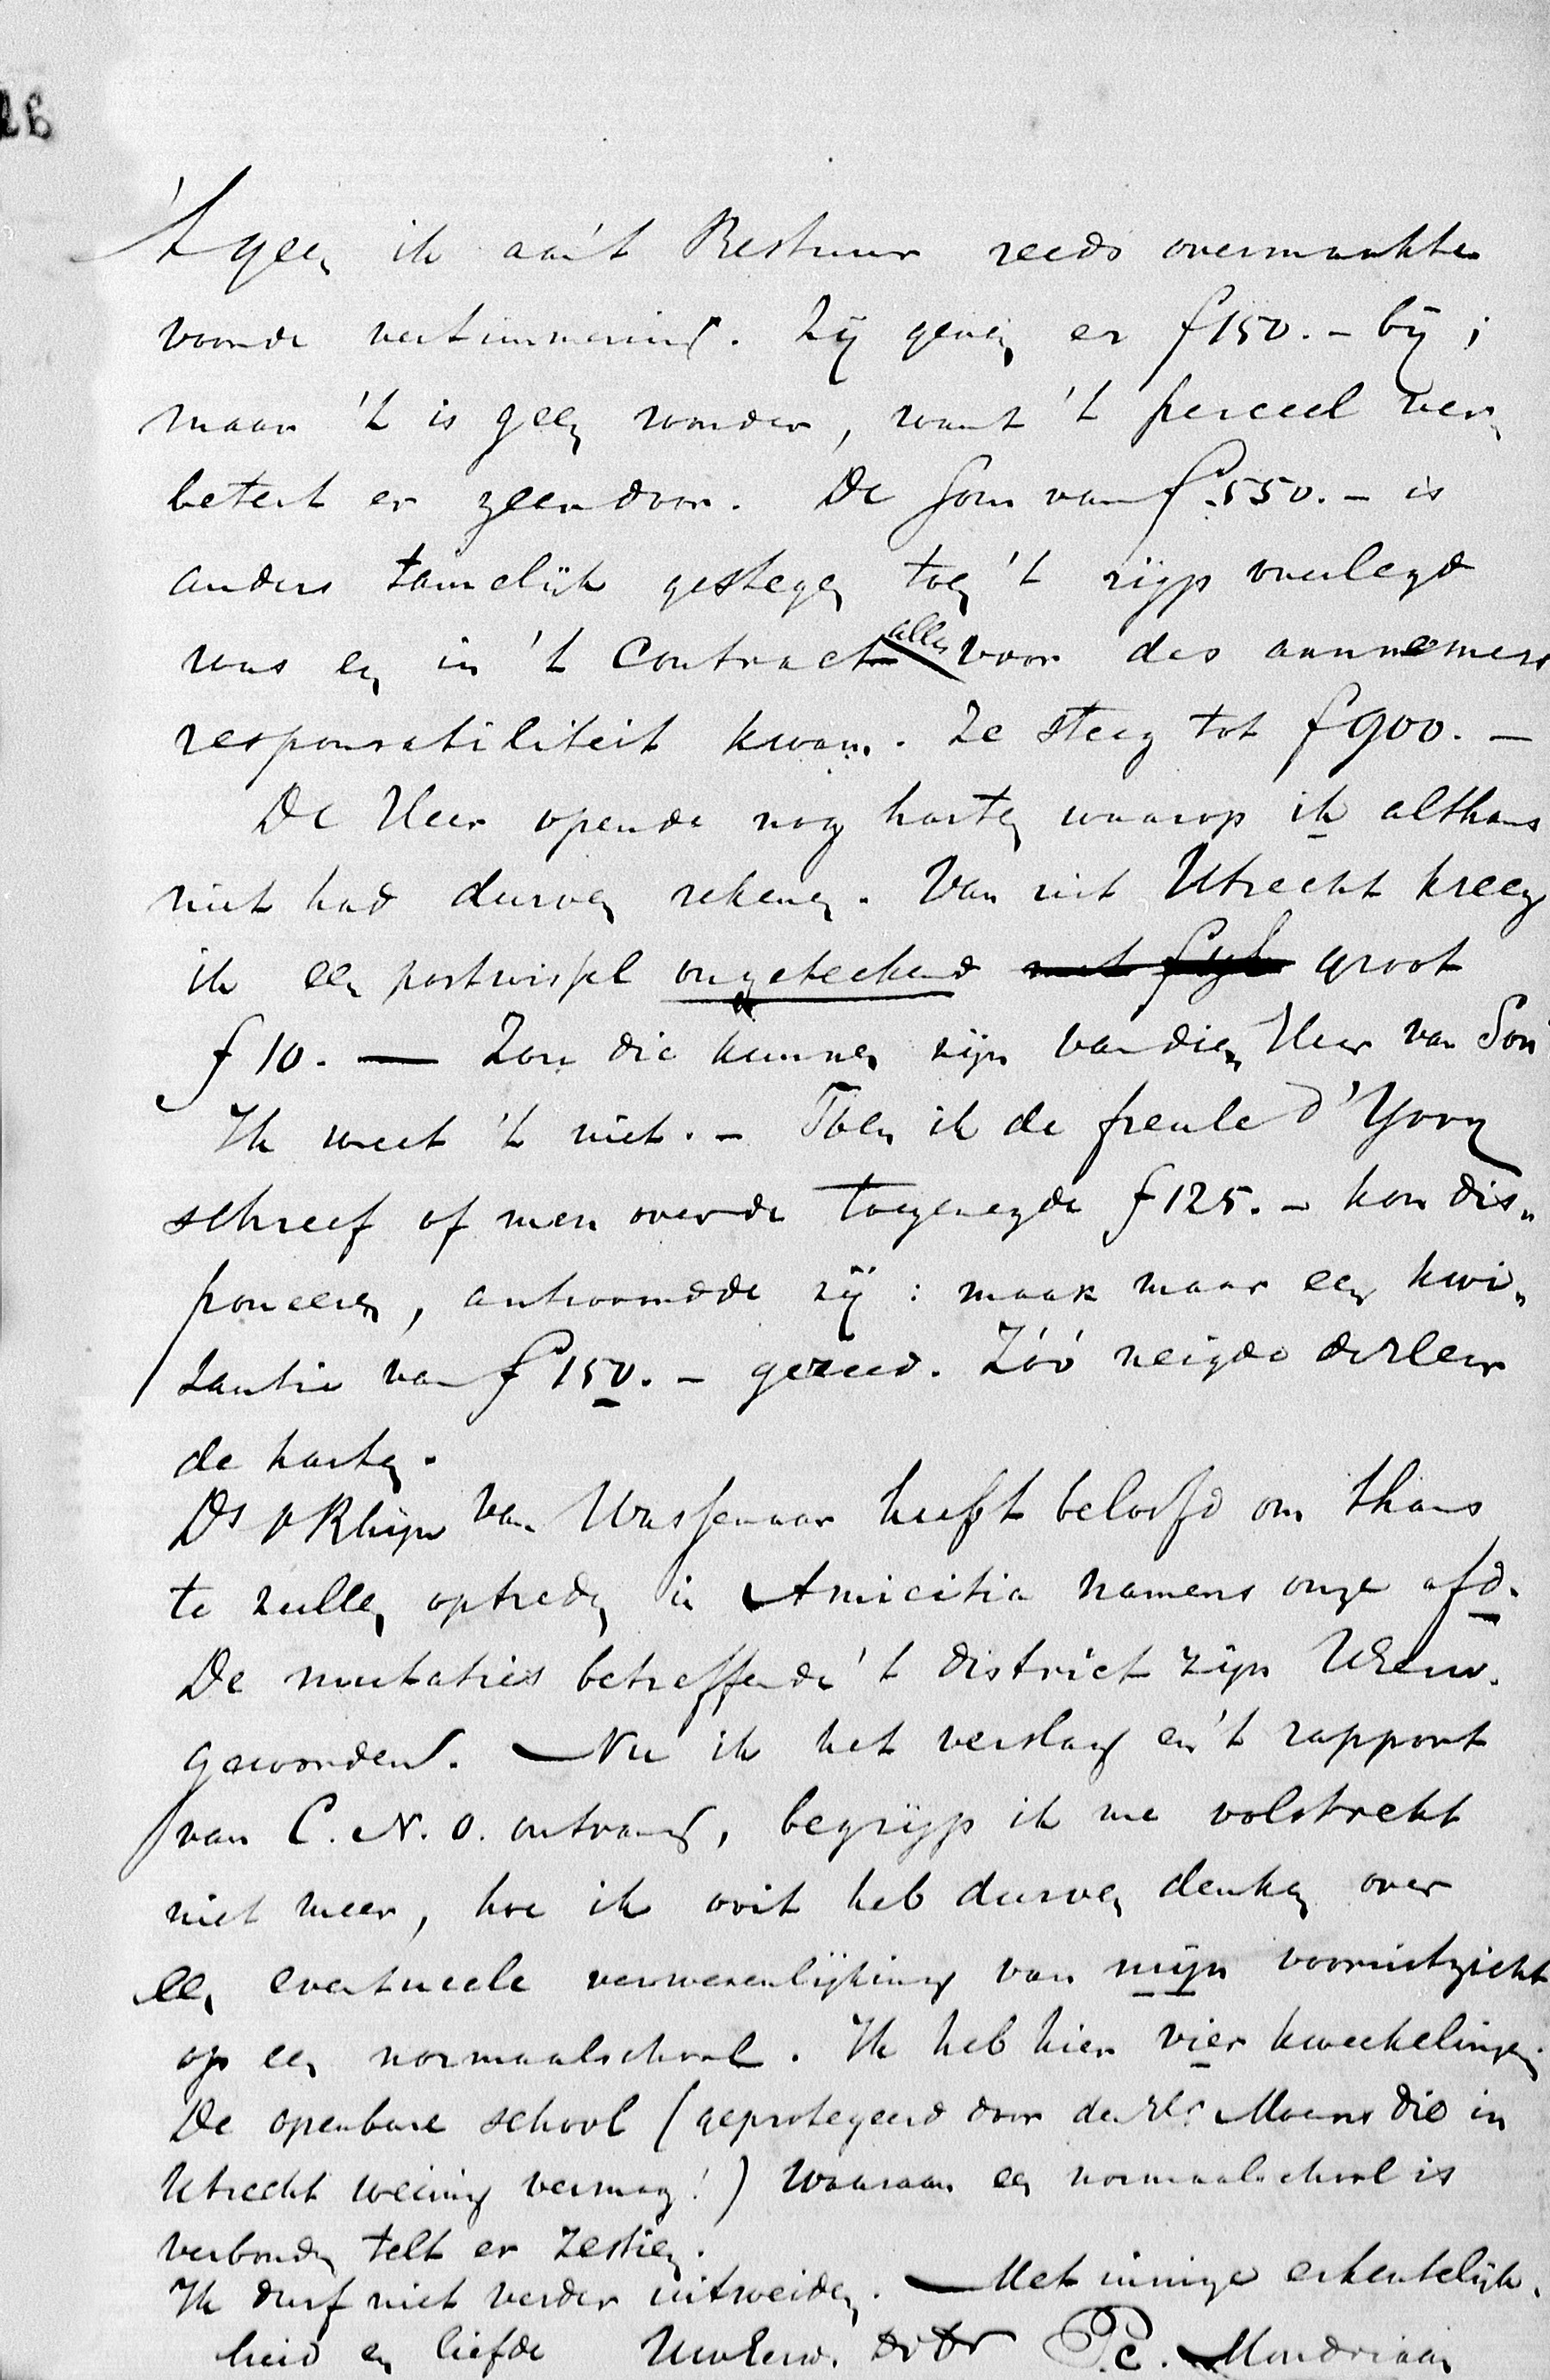 't geen ik aan 't Bestuur reeds overmaakte
voor de vertimmering. Zij geven er f 150.- bij;
maar 't is geen wonder, want 't perceel ver„
betert er zeer door. De som van f 550.- is
anders tamelijk gestegen toen 't rijp overlegd
was en in 't contract alles voor des aannemers
responsabiliteit kwam. Ze steeg tot f 900.-
De Heer opende nog harten waarop ik althans
niet had durven rekenen. Van uit Utrecht kreeg
ik een postwissel ongeteekend groot
f 10.— Zou die kunnen zijn van dien Heer van Son
Ik weet 't niet.- Toen ik de freule d'Yvoy
schreef of men over de toegezegde f 125.- kon dis„
poneeren, antwoordde zij: maak maar een kwi„
tantie van f 150.- gereed. Zóó neigde de Heer
de harten.
Ds v Rhijn van Wassenaar heeft beloofd om thans
te zullen optreden in Amicitia namens onze afd.
De mutaties betreffende 't district zijn UEerw.
geworden. — Nu ik het verslag en 't rapport
van C. N. O. ontvang, begrijp ik me volstrekt
niet meer, hoe ik ooit heb durven denken over
een eventueele verwezenlijking van mijn vooruitzicht
op een normaalschool. Ik heb hier vier kweekelingen.
De openbare school (geprotegeerd door den Hr Moens die in
Utrecht weinig vermag!) waaraan een normaalschool is
verbonden telt er zestien.
Ik durf niet verder uitweiden. — Met innige erkentelijk„
heid en liefde UwEerw. P. C. Mondriaan